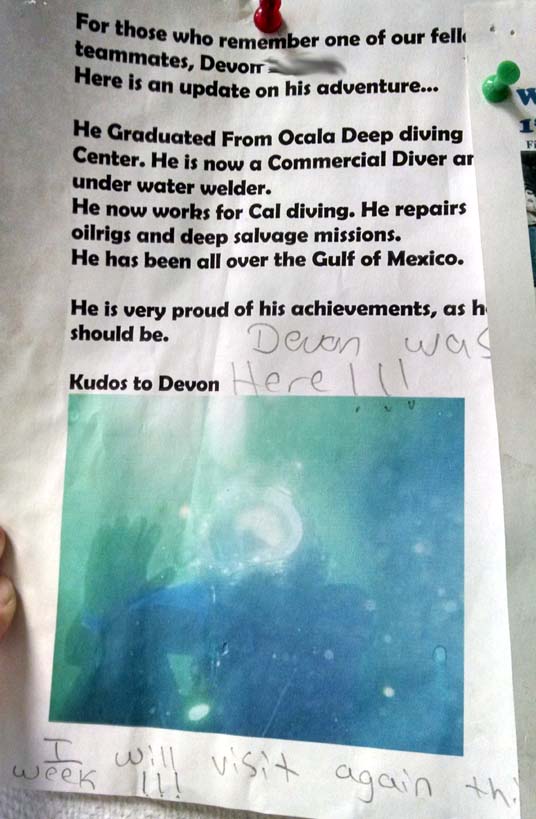 For those who remember one of our
teammates, Devon
Here is an update on his adventure...
He Graduated From Ocala Deep diving
Center. He is now a Commercial Diver
under water welder.
He now works for Cal diving. He repairs
oilrigs and deep salvage missions.
He has been all over the Gulf of Mexico.
He is very proud of his achievements, as
should be.
Devon was
Kudos to Devon Here!!!
I will visit again
week !!!